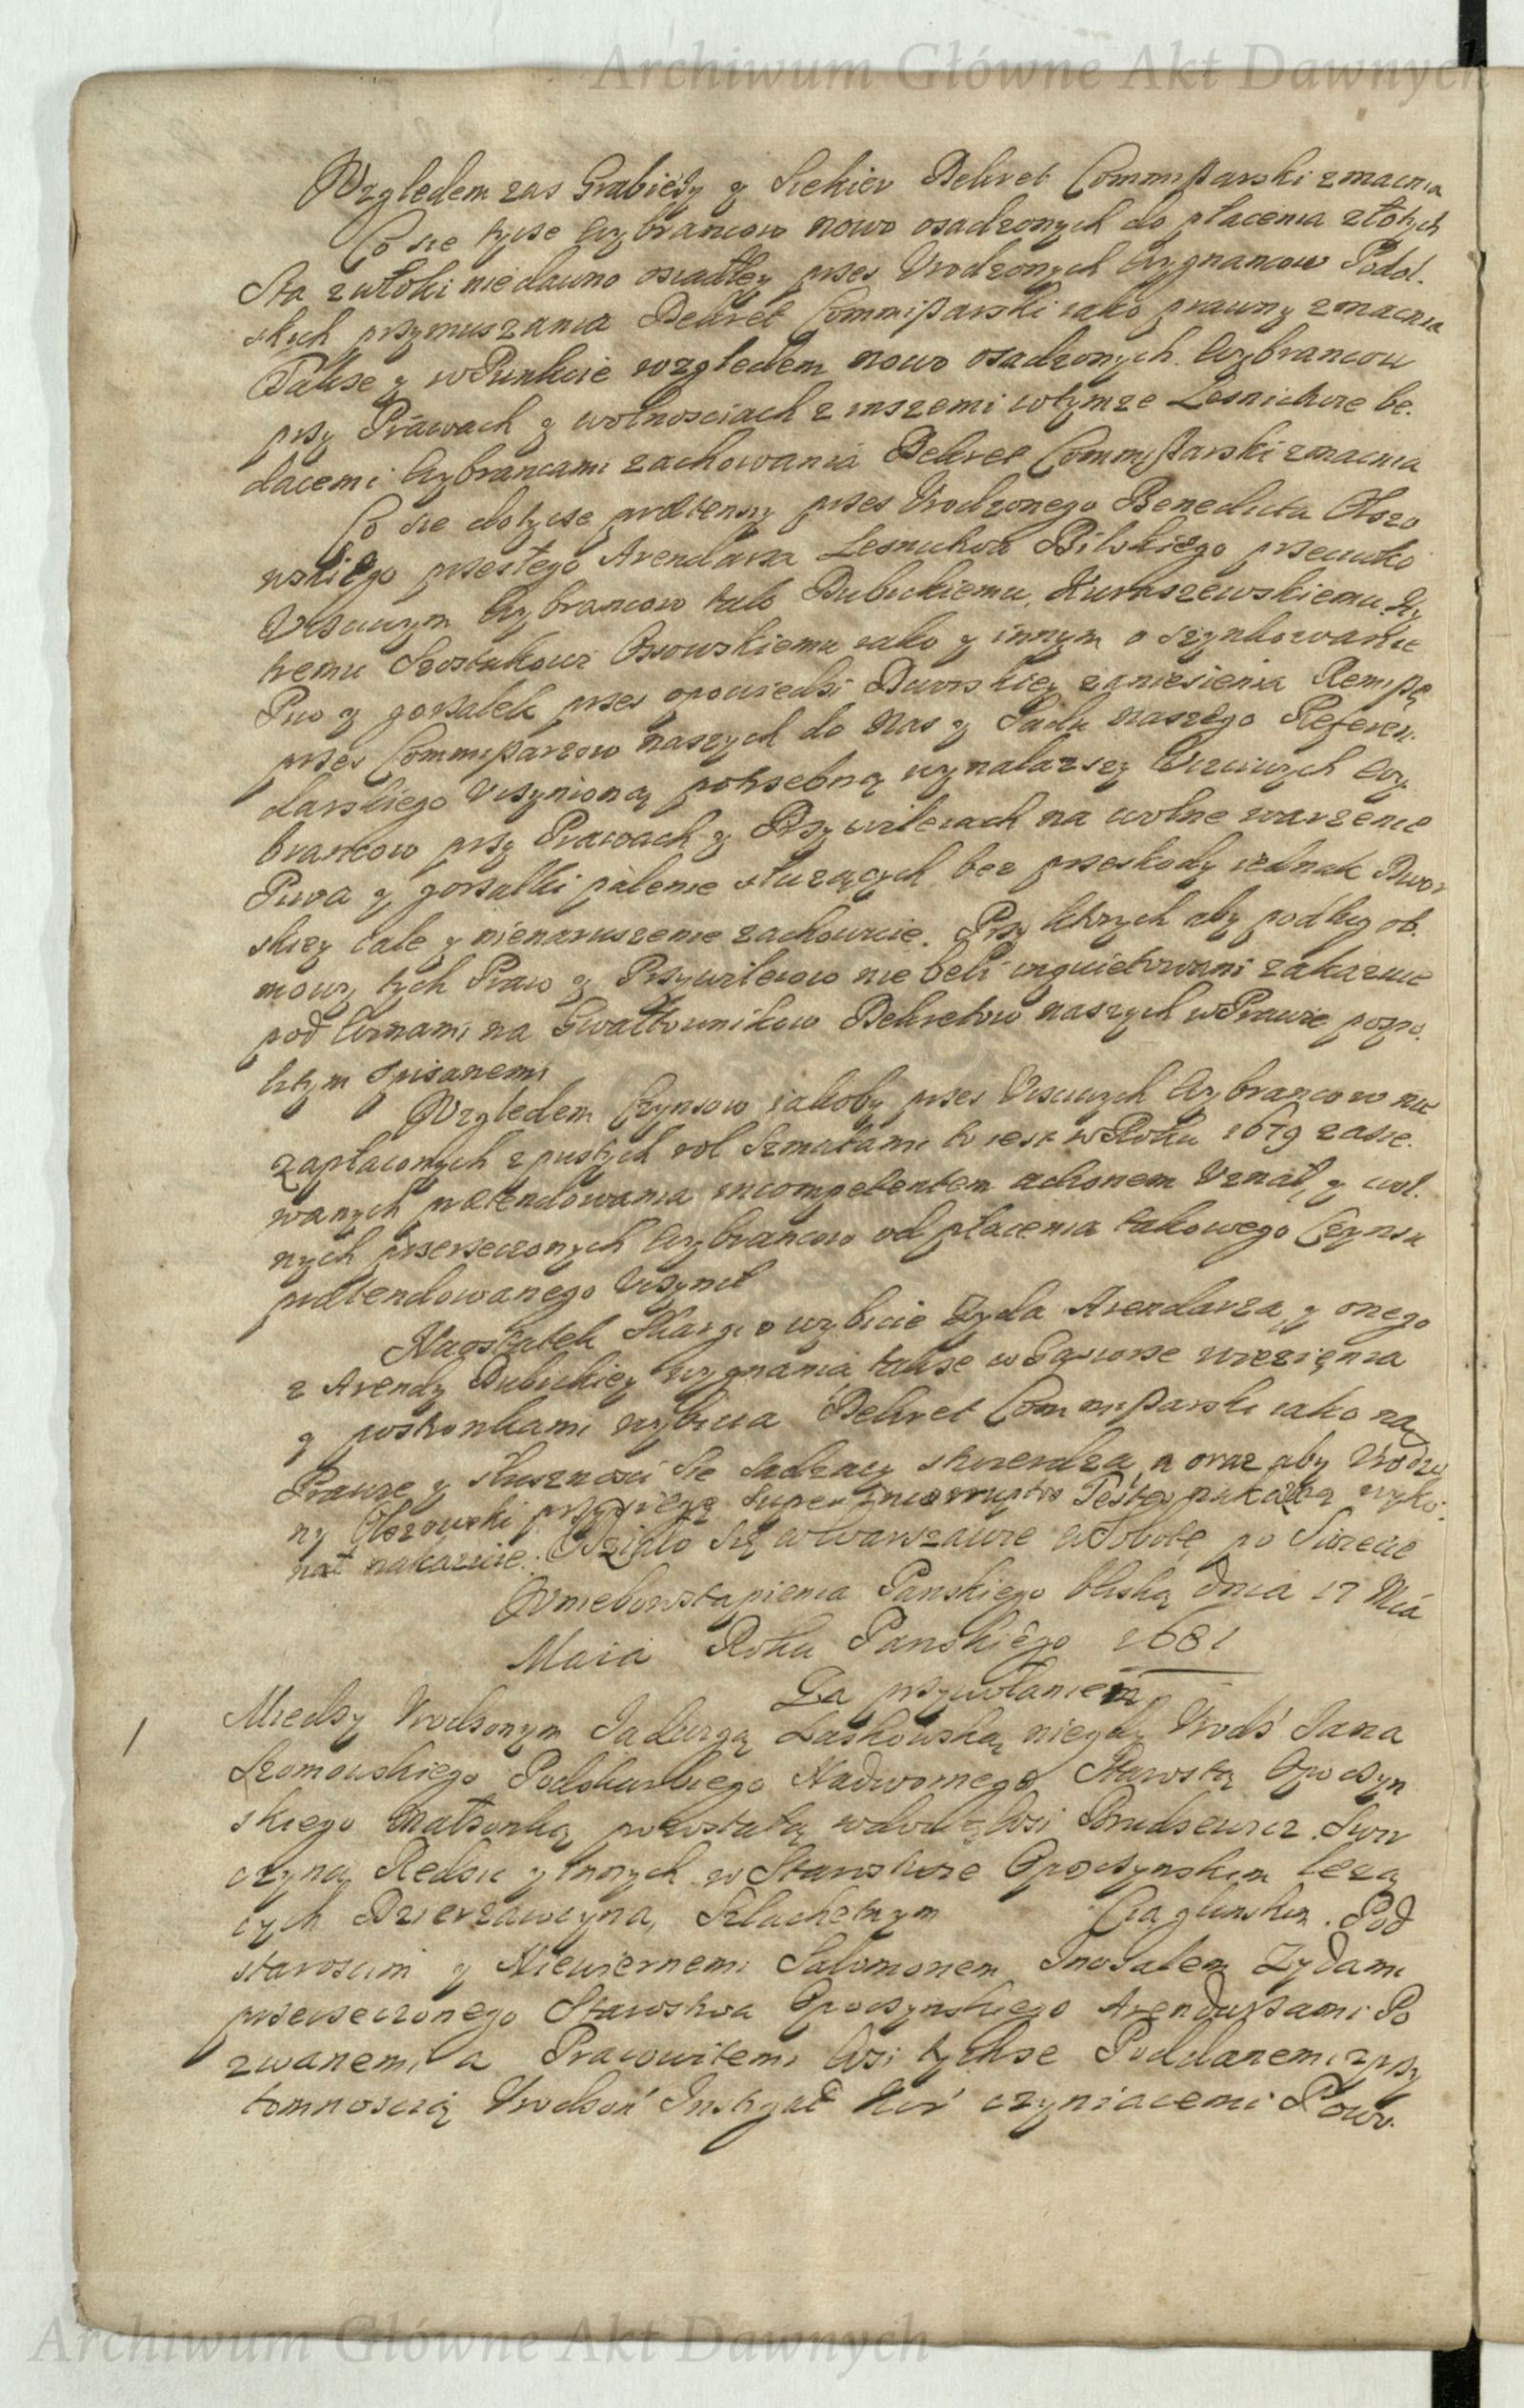 Archiwum Główne Akt Dawnych
Względem zas Grabiezy y Siekier Dekret Commissarski zmacnia
Co się tycse Wybrancow nowo osadzonych do płacenia złotych
Sta z włoki niedawno osiadłey przes Vrodzonych Wygnancow Podol.
skich przymuszania Dekret Commissarski iako prawny zmacnia
Takse y w Punkcie względem nowo osadzonych Wybrancow
przy Prawach y wolnosciach z inszemi w tymze Lesnictwie be.
dacemi Wybrancami zachowania Dekret Commissarski zmacnia
Co sie dotycse prætensy przes Vrodzonego Benedicta Olszo
wskiego przesłego Arendarza Lesnictwa Bilskiego przeciwko
Vcsciwym Wybrancow tak Dubickiemu, Kuraszewskiemu
tremu Szostakowi Osowskiemu iako y innym o szynkowanie
Piw y gorsałek przes opowiedsi Dworskiey zaniesienia Remissę
przes Commissarzow naszych do Nas y Sadu naszego Referen.
darskiego Vcsynioną potrsebną wynalazszy Vczciwych Wy.
brancow przy Prawach y Przywileiach na wolne warzenie
Piwa y gorsałki palenie słuzących bez przeskody iednak Dwor
skiey cale y nienaruszenie zachowuie. Przy ktorych aby podług ob.
mowy tych Praw y Przywileiow nie beli inquietowani zakazuie
pod Winami na Gwałtownikow Dekretow naszych w Prawie pospo.
litym opisanemi
Względem Czynsow iakoby przes Vcsciwych Wybrancow nie
zapłaconych z pustych rol Szmatami to iest w Roku 1679 zasie.
wanych prætendowania incompetentem actionem Vznał, y wol.
nych przerzeczonych Wybrancow od płacenia takowego Czynsu
prætendowanego Vcsynił
Naostatek Skargi o wybicie Zyda Arendarza, y onego
z Arendy Dubickiey wygnania, takse w Gąsiorse więzięnia
y postronkami wybicia Dekret Commissarski iako na
Prawie y słusznosci sie sadzacy stwierdza, a oraz aby Vrodzo
ny Olszowski przysięgę super Testes wyko.
nał nakazuie. Działo Się w Warszawie w Sobotę po Swiecie
Wniebowstąpienia Panskiego bliską Dnia 17 Mca
Maia Roku Panskiego 1681
Za przywołaniem
1 Miedzy Vrodsonym Jadwigą Laskowską niegdy Vrods Jana
Szomowskiego Podskarbiego Nadwornego Starostę Opocsyn
skiego Małsonką pozostałą wdową Wsi Brudsewicz
czyną, Redsic y innych w Starostwie Opocsynskim lezą
cych Dzierzawcyną, Szlachetnym Ciaglinskim Pod
staroscim y Niewiernemi Salomonem Zydami
przerseczonego Starostwa Opocsynskiego Arendarsami Po
zwanemi a Pracowitemi Wsi tychse Poddanemi z przy
tomnoscią Vrodson Instyg czyniacemi Pow.
Archiwum Główne Akt Dawnych